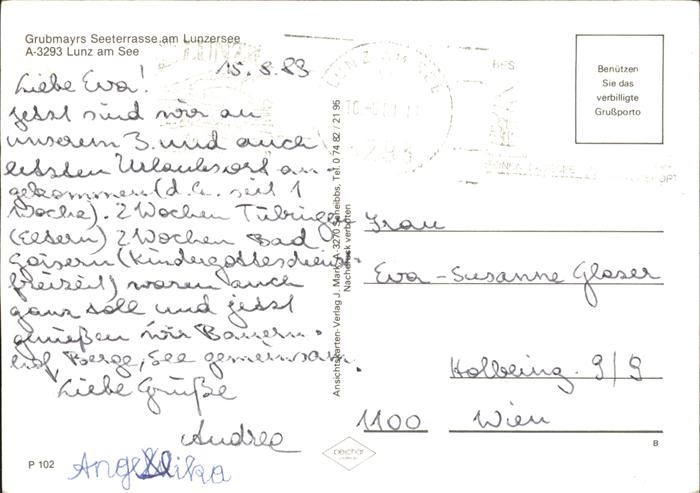 Grubmayrs Seeterrasse am Lunzersee
A-3293 Lunz am See
15.8.89
Liebe Eva!
Jetzt sind wir an
unserem 3. und auch
letzten Urlaubsort an-
gekommen (d.h. seit 1
Woche). 2 Wochen Tübingen
(Eltern) 2 Wochen Bad
Goisern (Kindergottesdienst-
freizeit) waren auch
ganz toll und jetzt
genießen wir Bauern-
hof, Berge, See gemeinsam.
Liebe Grüße
Andree
Angelika
P 102
Ansichtskarten-Verlag J. Mark, A-3270 Scheibbs, Tel. 0 74 82 / 21 95
Nachdruck verboten
LUNZ AM SEE
3293
Benützen
Sie das
verbilligte
Grußporto
Frau
Eva-Susanne Glaser
Holbeing. 9/9
1100 Wien
B